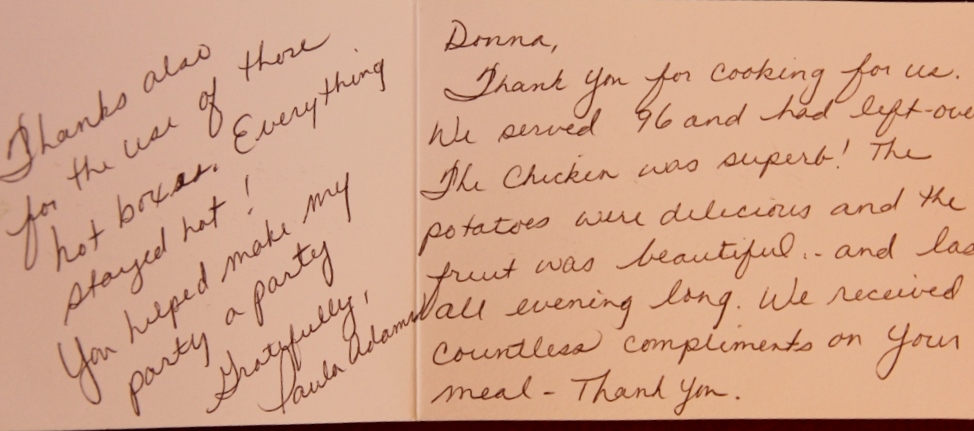 Donna,
Thank you for cooking for us.
We served 96 and had left-ove
The Chicken was superb! The
potatoes were delicious and the
fruit was beautiful.. and las
all evening long. We received
countless compliments on your
meal - Thank you.
Thanks also
for the use of those
hot boxes. Everything
stayed hot!
You helped make my
party a party
Gratefully,
Paula Adams